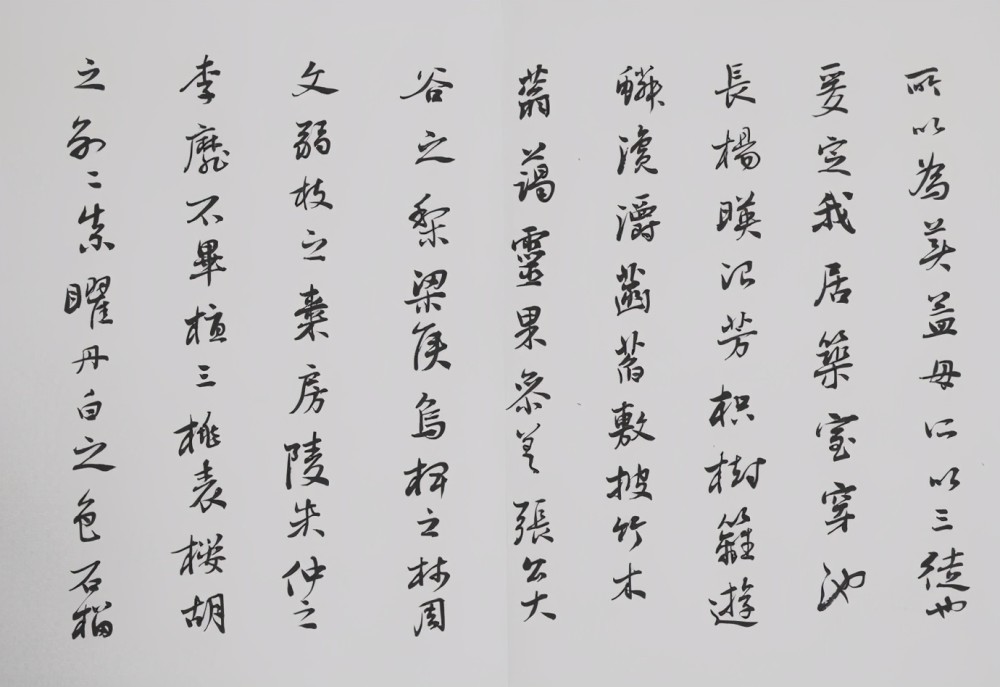 所以為美孟母所以三徙也
爰定我居築室穿池
長楊暎沼芳枳樹籬遊
鱗瀺灂菡萏敷披竹木
蓊藹靈果參差張公大
谷之梨梁侯烏椑之柿周
文弱枝之棗房陵朱仲之
李靡不畢植三桃表櫻胡
之別二柰曜丹白之色石榴